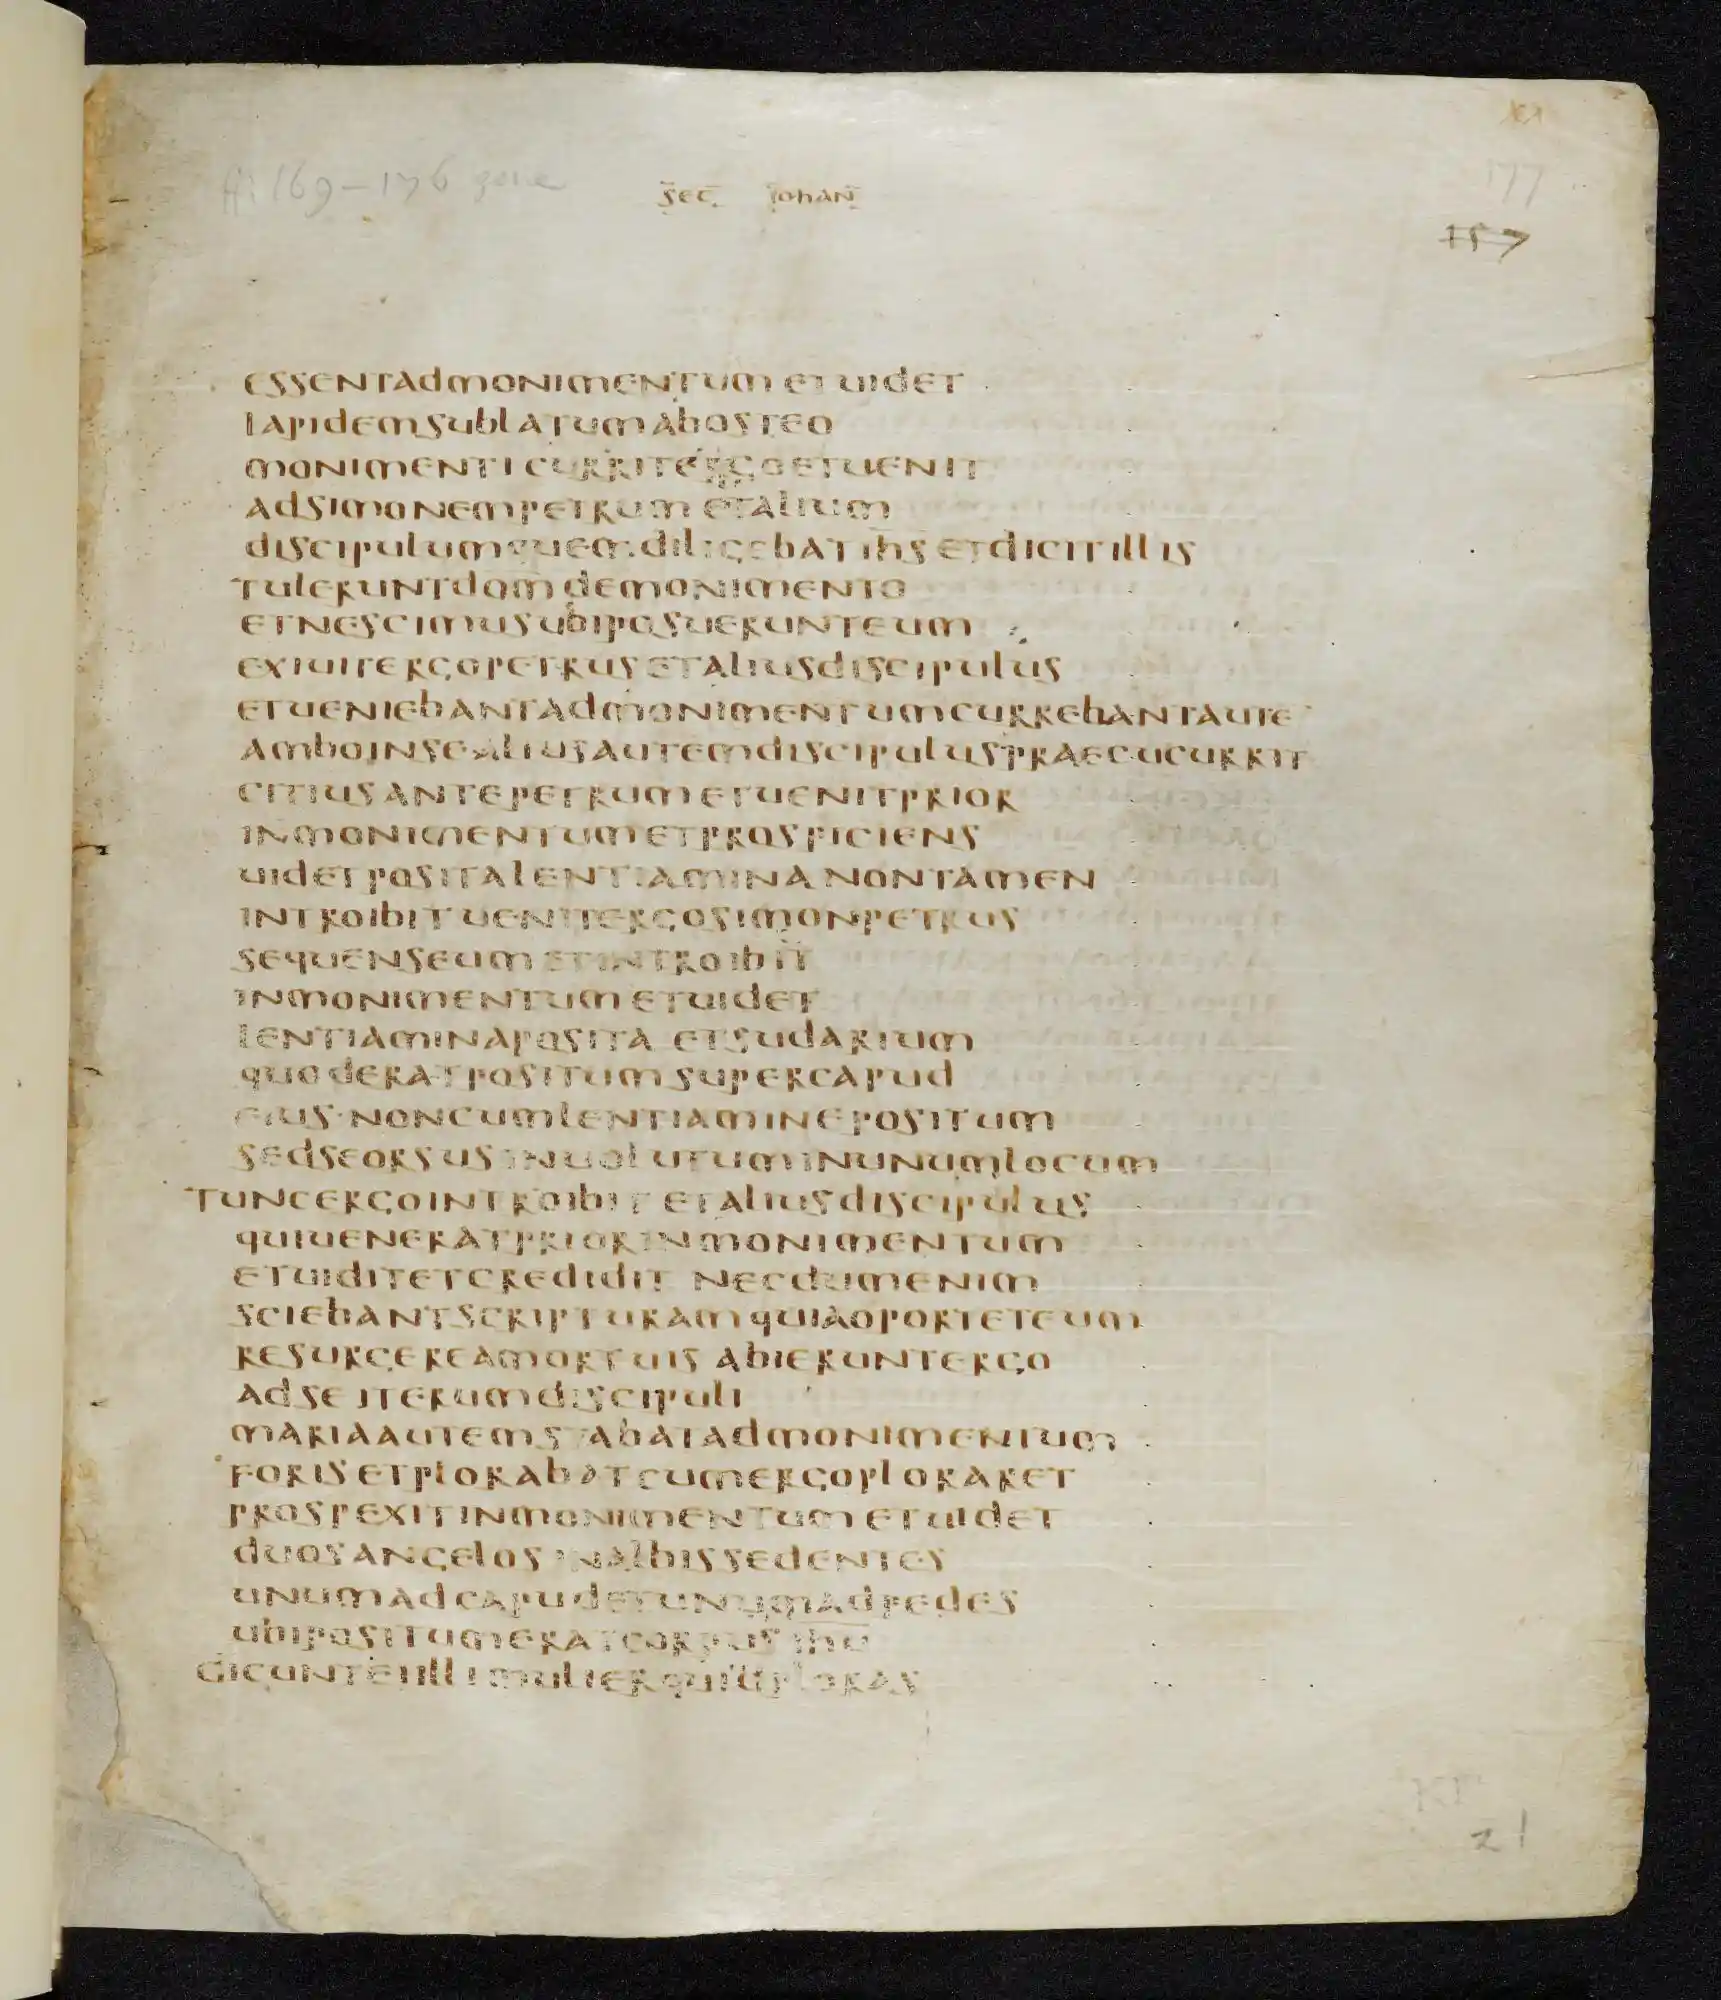 xx
ff. 169–176 gone
177
sec̄ iohan̄
157
essentadmonimentum etuidet
lapidemsublatumabosteo
monimenticurritergoetuenit
adsimonempetrum etalium
discipulumquem diligebat ih̄s etdicitillis
tuleruntdom̄ demonimento
etnescimusubiposuerunteum
exiuitergopetrus etaliusdiscipulus
etueniebantadmonimentumcurrebantaute
amboinsealiusautemdiscipuluspraecucurrit
citiusantepetrumetuenitprior
inmonimentumetprospiciens
uidetpositalentiamina nontamen
introibit uenitergosimonpetrus
sequenseum etintroibit
inmonimentumetuidet
lentiaminaposita etsudarium
quoderatpositumsupercapud
eius noncumlentiaminepositum
sedseorsus inuolutuminunumlocum
tuncergointroibit etaliusdiscipulus
quiueneratpriorinmonimentum
etuiditetcredidit necdumenim
sciebantscripturamquiaoporteteum
resurgereamortuis abieruntergo
adse iterumdiscipuli
mariaautemstabatadmonimentum
foris etplorabatcumergoploraret
prospexitinmonimentum etuidet
duosangelos inalbissedentes
unumadcapudetunumadpedes
ubipositumeratcorpus ihū
dicunteiilli mulierquidploras
21